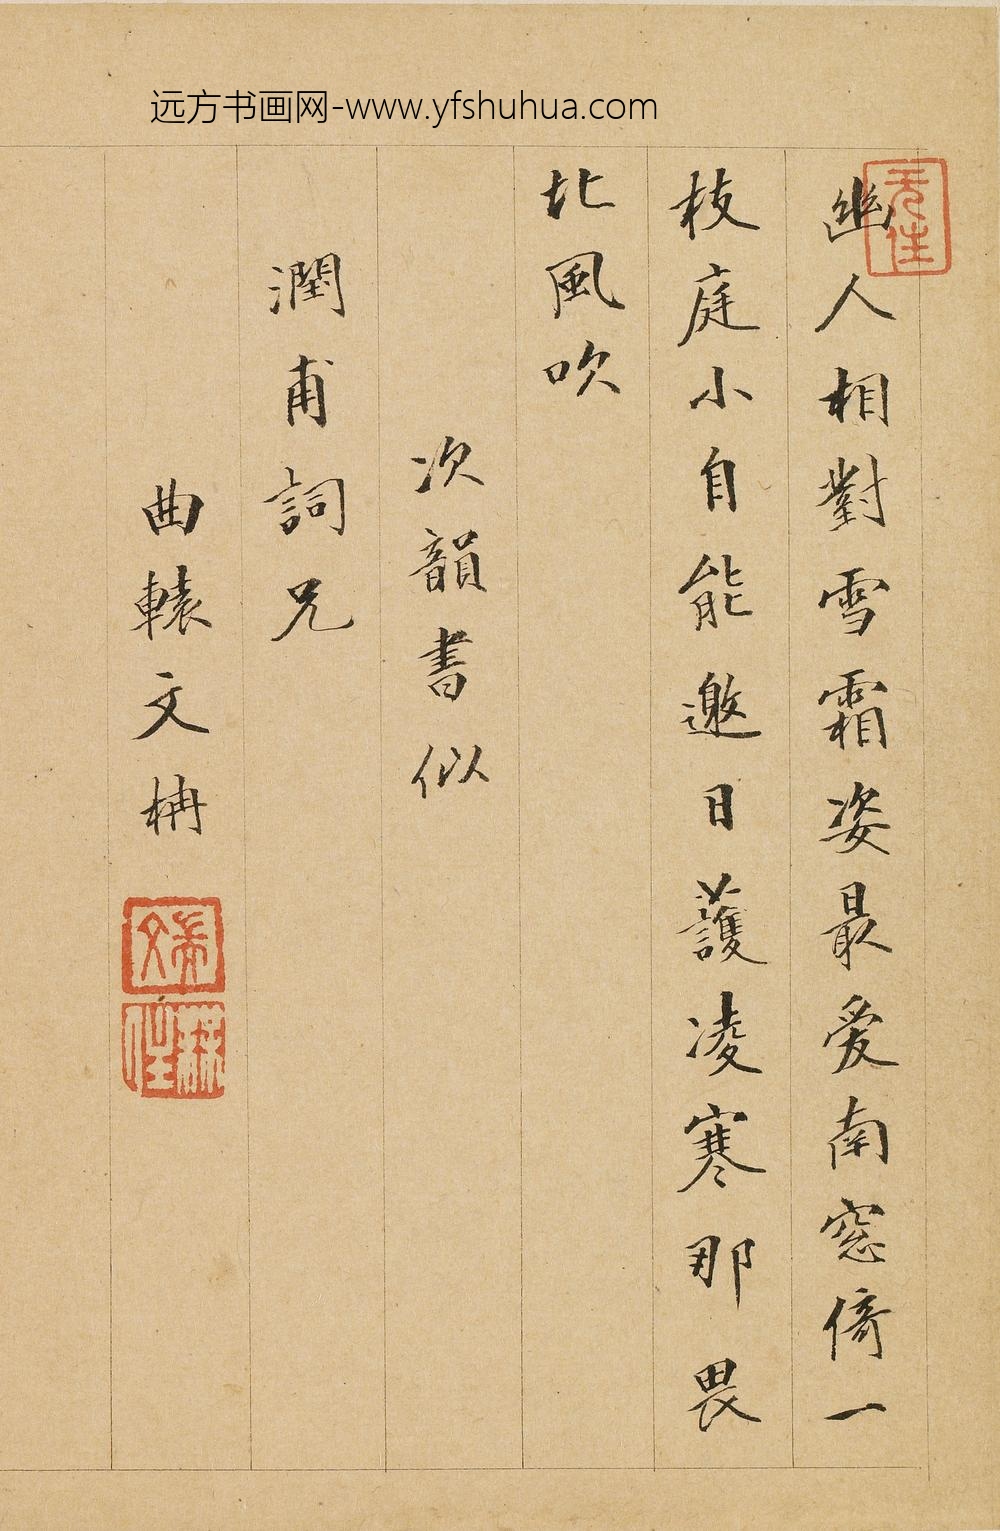 远方书画网-www.yfshuhua.com
幽人相對雪霜姿最爱南窓倚一
枝庭小自能邀日護凌寒那畏
北風吹
次韻書似
潤甫詞兄
曲轅文柟